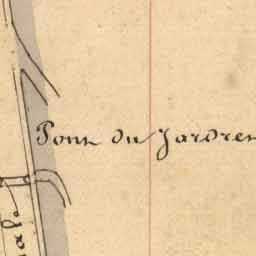 Pont du Jardren
al.